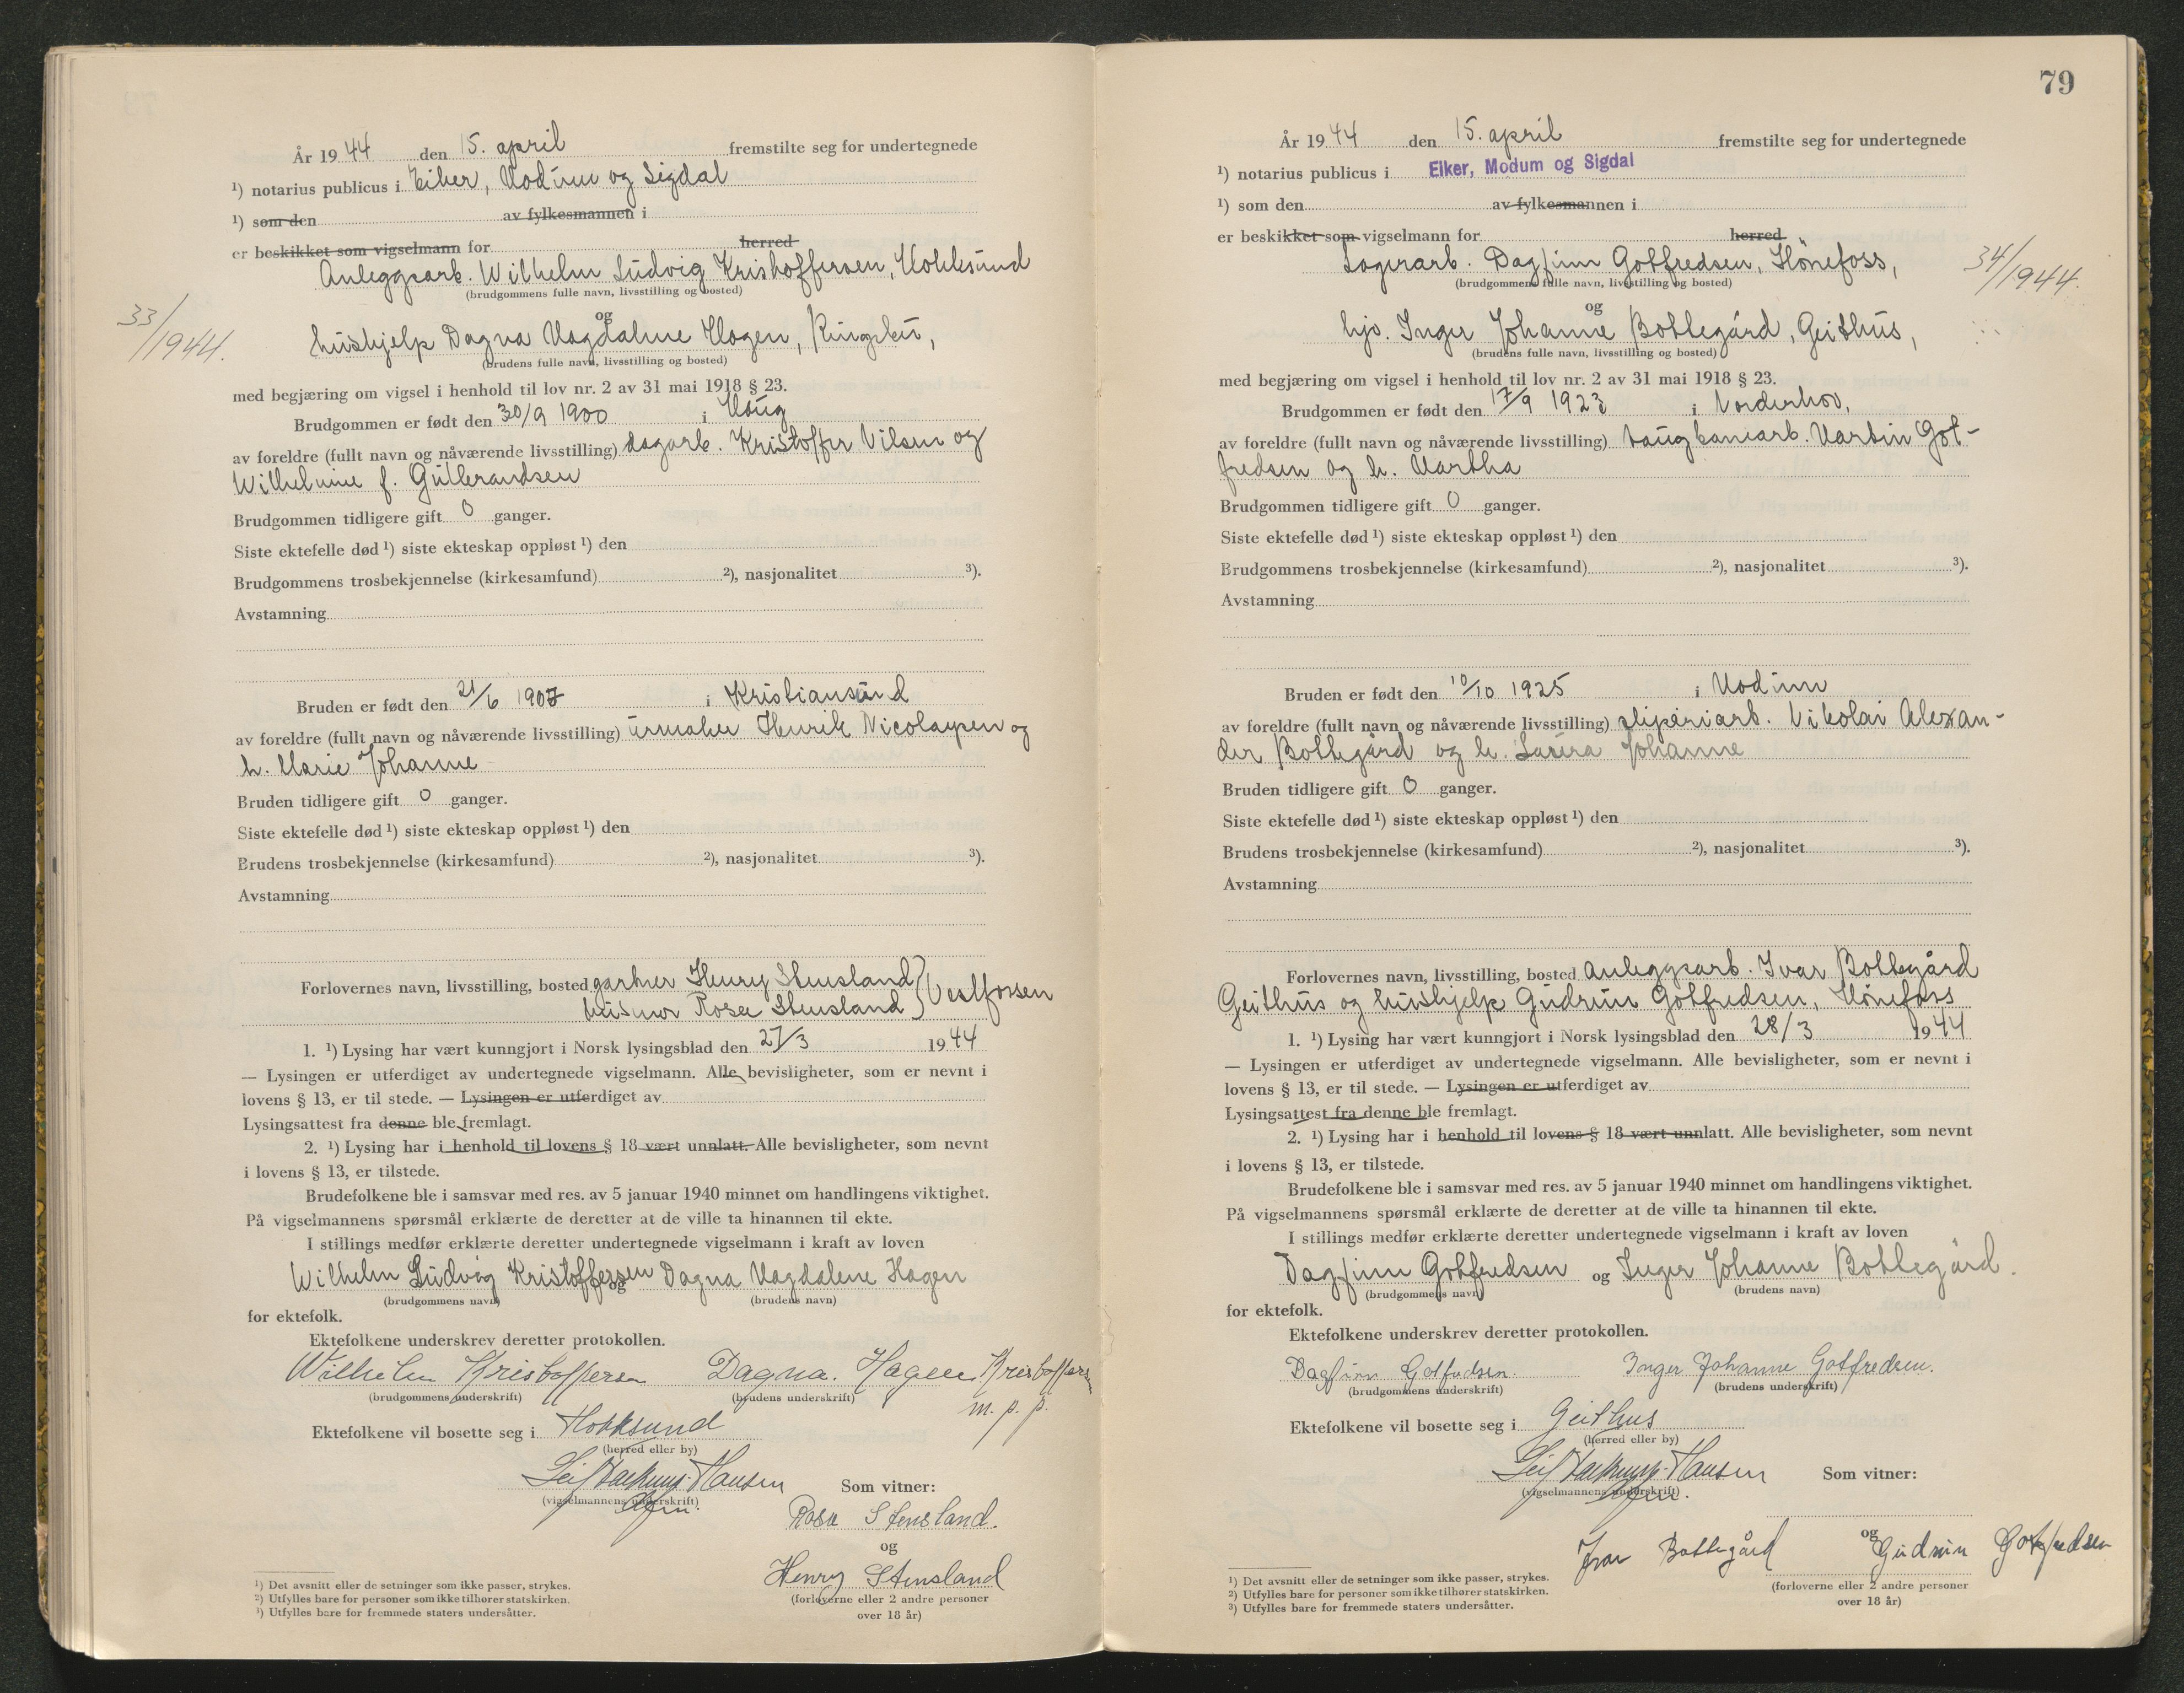 År 19 44 den 15. april fremstilte seg for undertegnede
¹) notarius publicus i Eiker, Modum og Sigdal
¹) som den av fylkesmannen i
er beskikket som vigselmann for herred
Anleggsarb. Wilhelm Ludvig Kristoffersen, Hokksund
(brudgommens fulle navn, livsstilling og bosted)
og
33/1944.
hushjelp Dagna Magdalene Hagen,
(brudens fulle navn, livsstilling og bosted)
med begjæring om vigsel i henhold til lov nr. 2 av 31 mai 1918 § 23.
Brudgommen er født den 30/9 1900 i Haug
av foreldre (fullt navn og nåværende livsstilling) dagarb. Kristoffer Nilsen og
Wilhelmine f. Gulbrandsen
Brudgommen tidligere gift 0 ganger.
Siste ektefelle død ¹) siste ekteskap oppløst ¹) den
Brudgommens trosbekjennelse (kirkesamfund) ²), nasjonalitet ³).
Avstamning
Bruden er født den 21/6 1907 i Kristiansund
av foreldre (fullt navn og nåværende livsstilling) urmaker Henrik Nicolaysen og
h. Marie Johanne
Bruden tidligere gift 0 ganger.
Siste ektefelle død ¹) siste ekteskap oppløst ¹) den
Brudens trosbekjennelse (kirkesamfund) ²), nasjonalitet ³).
Avstamning
Forlovernes navn, livsstilling, bosted gartner Henry Stensland } Vestfossen
husmor Rosa Stensland
1. ¹) Lysing har vært kunngjort i Norsk lysingsblad den 27/3 19 44
— Lysingen er utferdiget av undertegnede vigselmann. Alle bevisligheter, som er nevnt i
lovens § 13, er til stede. — Lysingen er utferdiget av
Lysingsattest fra denne ble fremlagt.
2. ¹) Lysing har i henhold til lovens § 18 vært unnlatt. Alle bevisligheter, som nevnt
i lovens § 13, er tilstede.
Brudefolkene ble i samsvar med res. av 5 januar 1940 minnet om handlingens viktighet.
På vigselmannens spørsmål erklærte de deretter at de ville ta hinannen til ekte.
I stillings medfør erklærte deretter undertegnede vigselmann i kraft av loven
Wilhelm Ludvig Kristoffersen og Dagna Magdalene Hagen
(brudgommens navn) (brudens navn)
for ektefolk.
Ektefolkene underskrev deretter protokollen.
Wilhelm Kristoffersen Dagna. Hagen Kristoffersen
(brudgommens underskrift) (brudens underskrift) m. p. p.
Ektefolkene vil bosette seg i Hokksund
(herred eller by)
Leif Hansen Som vitner:
(vigselmannens underskrift)
Rosa Stensland.
og
Henry Stensland
(forloverne eller 2 andre personer
over 18 år)
¹) Det avsnitt eller de setninger som ikke passer, strykes.
²) Utfylles bare for personer som ikke tilhører statskirken.
³) Utfylles bare for fremmede staters undersåtter.
79
År 19 44 den 15. april fremstilte seg for undertegnede
¹) notarius publicus i Eiker, Modum og Sigdal
¹) som den av fylkesmannen i
er beskikket som vigselmann for herred
Lagerarb. Dagfinn Gotfredsen, Hønefoss,
(brudgommens fulle navn, livsstilling og bosted)
34/1944.
og
hjv. Inger Johanne Bottegård, Geithus,
(brudens fulle navn, livsstilling og bosted)
med begjæring om vigsel i henhold til lov nr. 2 av 31 mai 1918 § 23.
Brudgommen er født den 17/9 1923 i Norderhov,
av foreldre (fullt navn og nåværende livsstilling) taugbanearb. Martin Got-
fredsen og h. Martha
Brudgommen tidligere gift 0 ganger.
Siste ektefelle død ¹) siste ekteskap oppløst ¹) den
Brudgommens trosbekjennelse (kirkesamfund) ²), nasjonalitet ³).
Avstamning
Bruden er født den 10/10 1925 i Modum
av foreldre (fullt navn og nåværende livsstilling) sliperiarb. Nikolai Alexan-
der Bottegård og h. Laura Johanne
Bruden tidligere gift 0 ganger.
Siste ektefelle død ¹) siste ekteskap oppløst ¹) den
Brudens trosbekjennelse (kirkesamfund) ²), nasjonalitet ³).
Avstamning
Forlovernes navn, livsstilling, bosted anleggsarb. Ivar Bottegård
Geithus og hushjelp Gudrun Gotfredsen, Hønefoss
1. ¹) Lysing har vært kunngjort i Norsk lysingsblad den 28/3 19 44
— Lysingen er utferdiget av undertegnede vigselmann. Alle bevisligheter, som er nevnt i
lovens § 13, er til stede. — Lysingen er utferdiget av
Lysingsattest fra denne ble fremlagt.
2. ¹) Lysing har i henhold til lovens § 18 vært unnlatt. Alle bevisligheter, som nevnt
i lovens § 13, er tilstede.
Brudefolkene ble i samsvar med res. av 5 januar 1940 minnet om handlingens viktighet.
På vigselmannens spørsmål erklærte de deretter at de ville ta hinannen til ekte.
I stillings medfør erklærte deretter undertegnede vigselmann i kraft av loven
Dagfinn Gotfredsen og Inger Johanne Bottegård.
(brudgommens navn) (brudens navn)
for ektefolk.
Ektefolkene underskrev deretter protokollen.
Dagfinn Gotfredsen. Inger Johanne Gotfredsen.
(brudgommens underskrift) (brudens underskrift)
Ektefolkene vil bosette seg i Geithus
(herred eller by)
Leif Hansen Som vitner:
(vigselmannens underskrift)
Ivar Bottegård og Gudrun Gotfredsen
(forloverne eller 2 andre personer
over 18 år)
¹) Det avsnitt eller de setninger som ikke passer, strykes.
²) Utfylles bare for personer som ikke tilhører statskirken.
³) Utfylles bare for fremmede staters undersåtter.